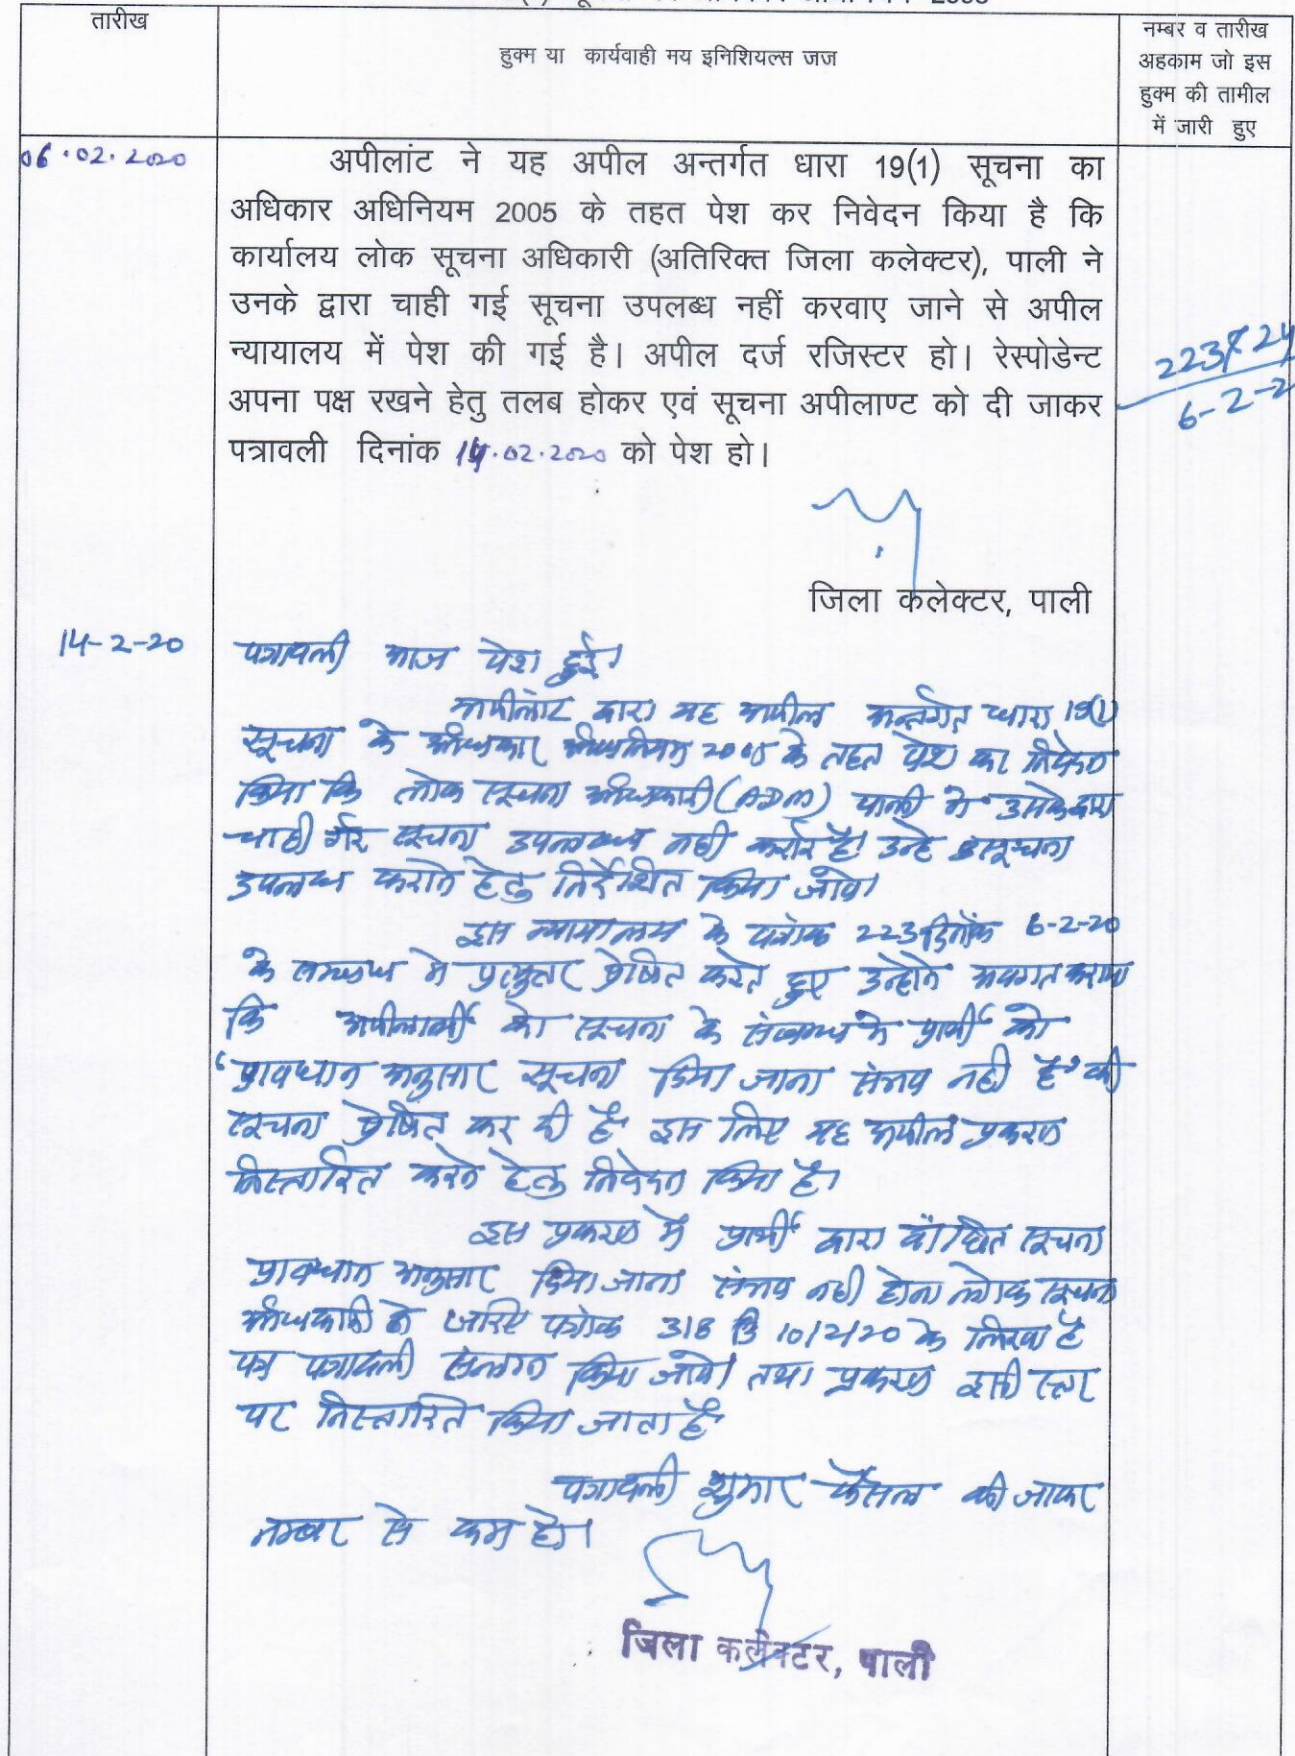 तारीख
हुक्म या कार्यवाही मय इनिशियल्स जज
नम्बर व तारीख
अहकाम जो इस
हुक्म की तामील
में जारी हुए
06.02.2020
अपीलांट ने यह अपील अन्तर्गत धारा 19(1) सूचना का
अधिकार अधिनियम 2005 के तहत पेश कर निवेदन किया है कि
कार्यालय लोक सूचना अधिकारी (अतिरिक्त जिला कलेक्टर), पाली ने
उनके द्वारा चाही गई सूचना उपलब्ध नहीं करवाए जाने से अपील
न्यायालय में पेश की गई है। अपील दर्ज रजिस्टर हो। रेस्पोडेन्ट
अपना पक्ष रखने हेतु तलब होकर एवं सूचना अपीलाण्ट को दी जाकर
पत्रावली दिनांक 14.02.2020 को पेश हो।
223/24
6-2-2
जिला कलेक्टर, पाली
14-2-20
पत्रावली आज पेश हुई।
अपीलांट द्वारा यह अपील अन्तर्गत धारा 19(1)
सूचना के अधिकार अधिनियम 2005 के तहत पेश कर निवेदन
किया कि लोक सूचना अधिकारी (ADM) पाली ने उसके द्वारा
चाही गई सूचना उपलब्ध नही कराई है। उन्हे सूचना
उपलब्ध कराने हेतु निर्देशित किया जावे।
इस न्यायालय के पत्रांक 223 दिनांक 6-2-20
के सम्बन्ध मे प्रत्युतर प्रेषित करते हुए उन्होने अवगत कराया
कि अपीलार्थी को सूचना के संबन्ध मे प्रार्थी को
"प्रावधान अनुसार सूचना दिया जाना संभव नही है" की
सूचना प्रेषित कर दी है इस लिए यह अपील प्रकरण
निस्तारित करने हेतु निवेदन किया है।
इस प्रकरण मे प्रार्थी द्वारा वांछित सूचना
प्रावधान अनुसार दिया जाना संभव नही होना लोक सूचना
अधिकारी ने जरिए पत्रांक 318 दि 10/2/20 के लिखा है
पत्र पत्रावली संलग्न किया जावे। तथा प्रकरण इसी स्तर
पर निस्तारित किया जाता है
पत्रावली शुमार फैसल की जाकर
नम्बर से कम हो।
जिला कलेक्टर, पाली